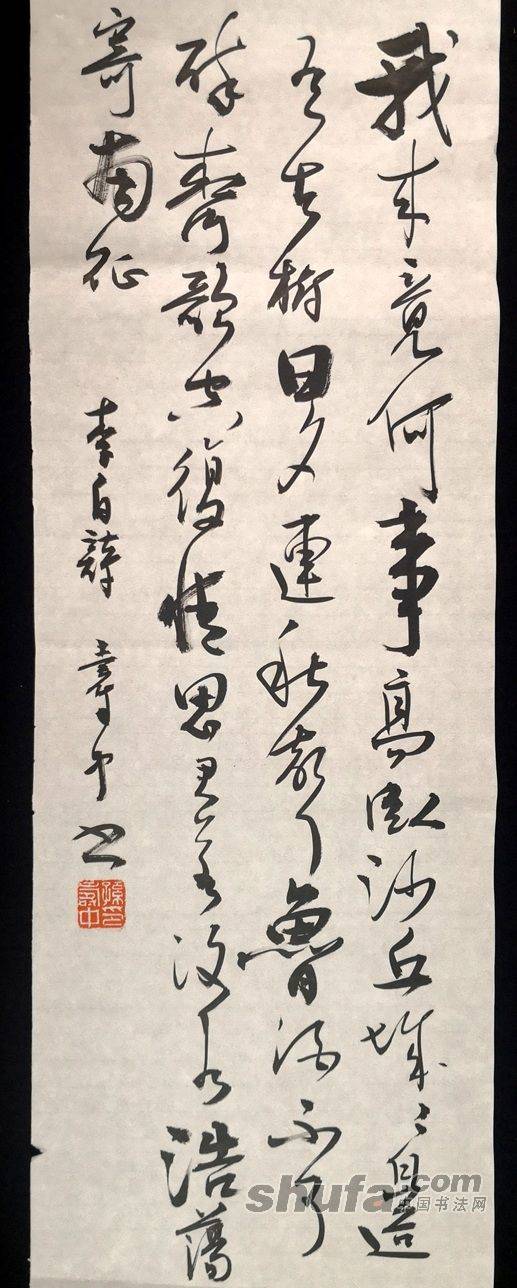 我来竟何事高臥沙丘城〻邊
有古樹日夕連秋聲魯酒不可
醉齊歌空復情思君若汶水浩蕩
寄南征
李白詩 壽中书
孫印壽中
shufa.com
中国书法网